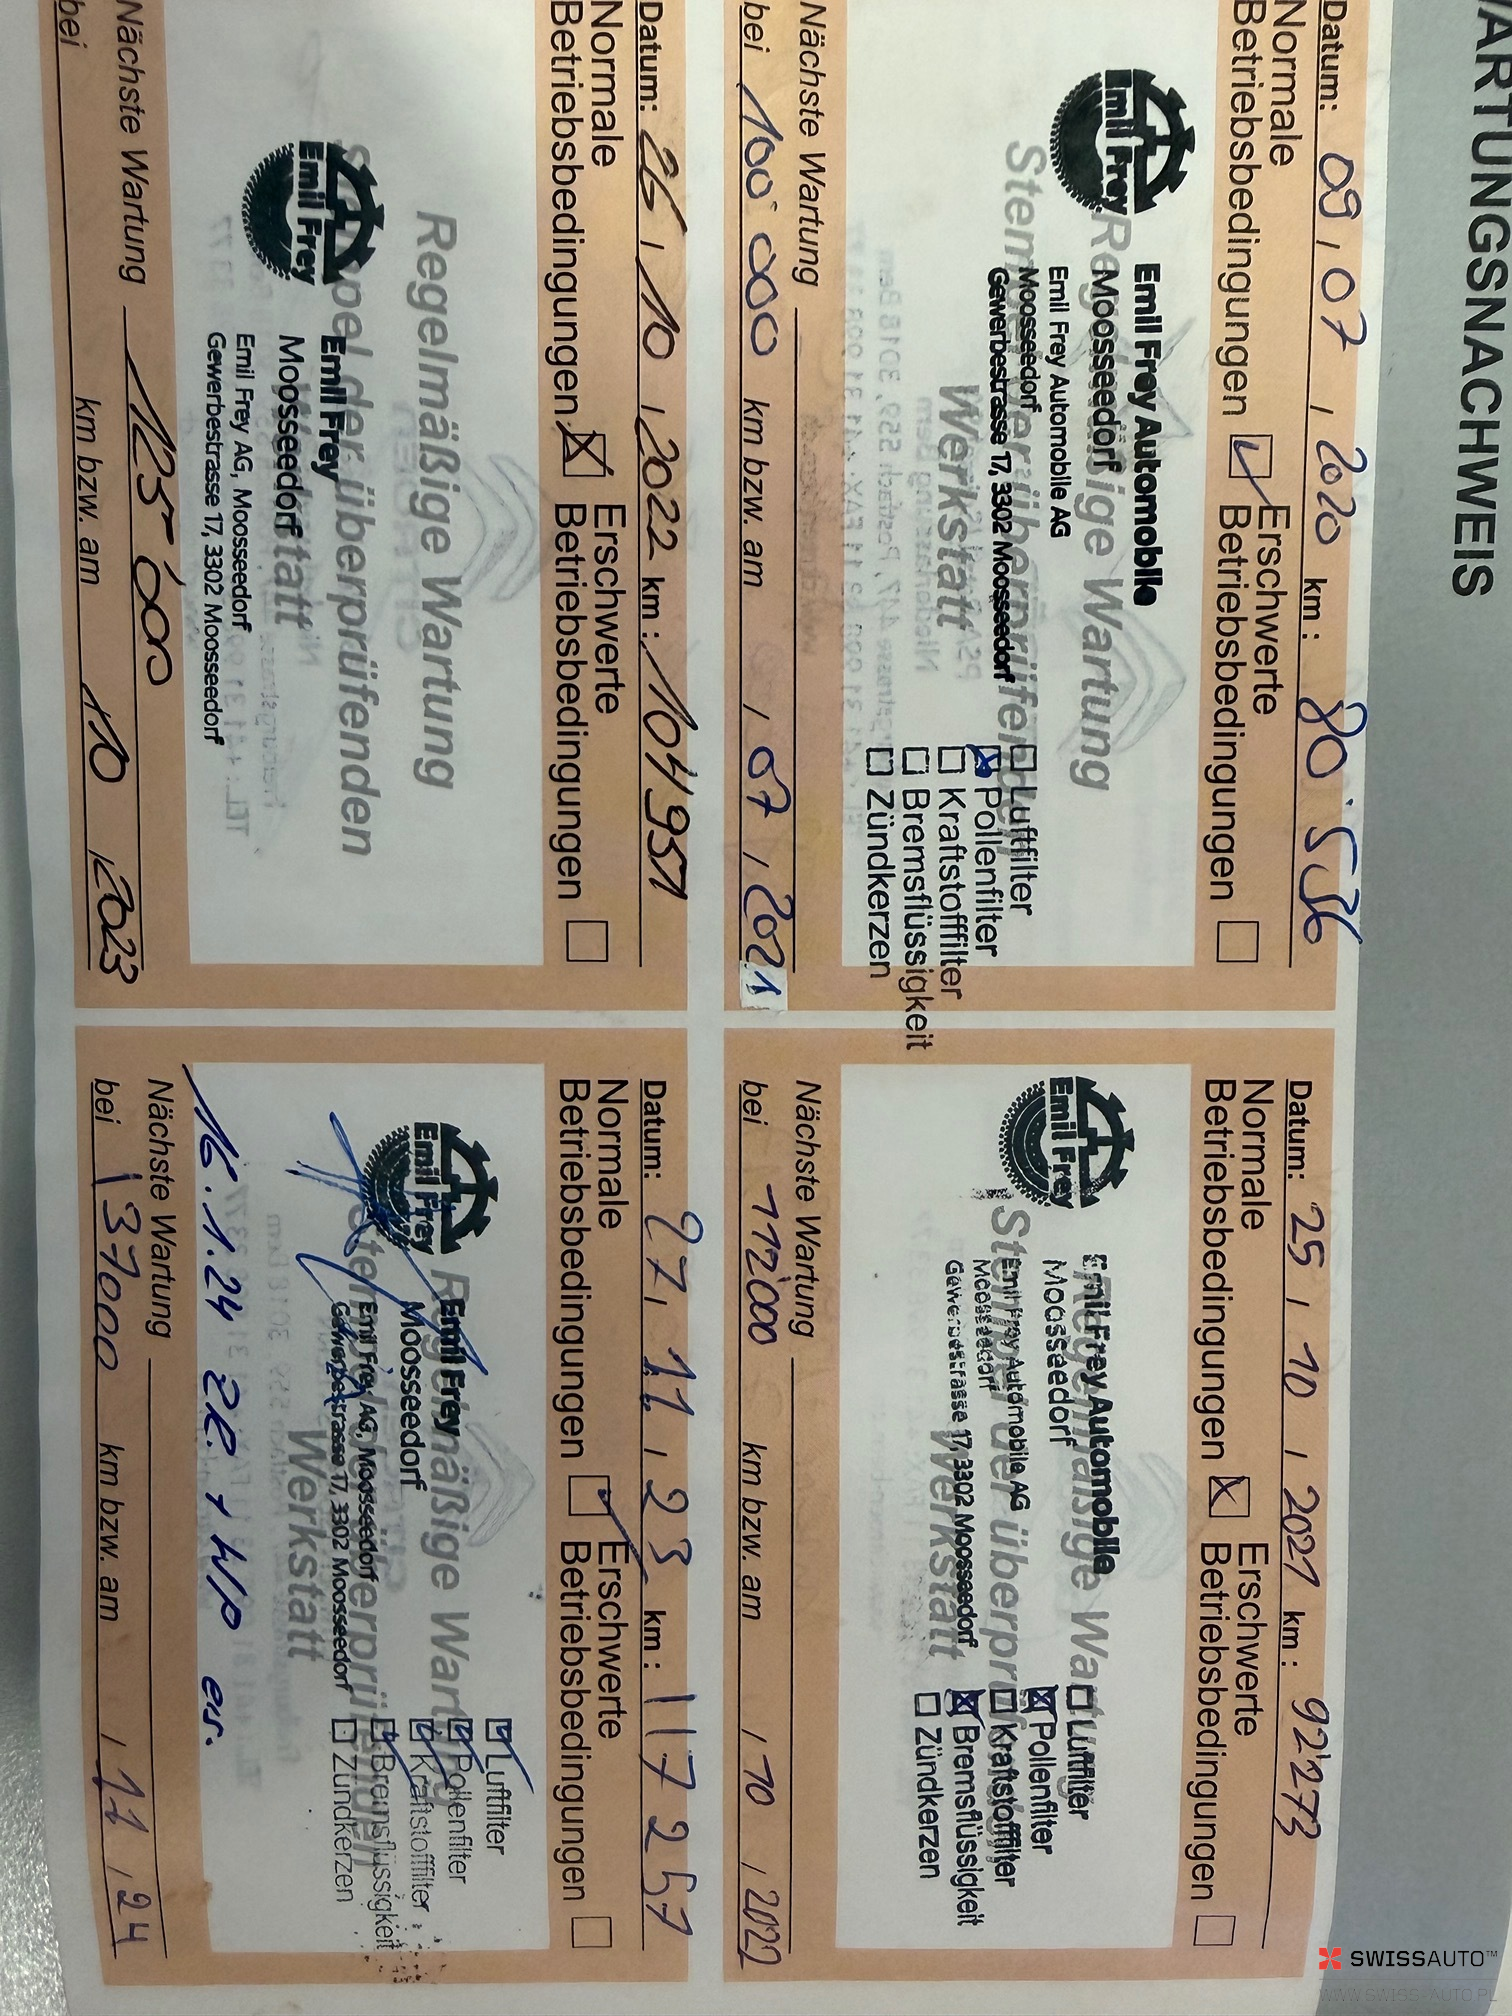 WARTUNGSNACHWEIS
Datum: 09.07.2020 km: 80'536
Normale Betriebsbedingungen
Erschwerte Betriebsbedingungen
Emil Frey
Emil Frey Automobile
Moosseedorf
Emil Frey Automobile AG
Moosseedorf
Gewerbestrasse 17, 3302 Moosseedorf
Regelmäßige Wartung
Stempel der überprüfenden
Werkstatt
Luftfilter
Pollenfilter
Kraftstofffilter
Bremsflüssigkeit
Zündkerzen
Nächste Wartung
bei 100'000 km bzw. am , 07, 2021
Datum: 25, 10, 2021 km: 92'273
Normale Betriebsbedingungen
Erschwerte Betriebsbedingungen
Emil Frey
Emil Frey Automobile
Moosseedorf
Emil Frey Automobile AG
Moosseedorf
Gewerbestrasse 17, 3302 Moosseedorf
Regelmäßige Wartung
Stempel der überprüfenden
Werkstatt
Luftfilter
Pollenfilter
Kraftstofffilter
Bremsflüssigkeit
Zündkerzen
Nächste Wartung
bei 112'000 km bzw. am , 10, 2022
Datum: 26, 10, 2022 km: 104951
Normale Betriebsbedingungen
Erschwerte Betriebsbedingungen
Regelmäßige Wartung
Stempel der überprüfenden
Werkstatt
Emil Frey
Emil Frey
Moosseedorf
Emil Frey AG, Moosseedorf
Gewerbestrasse 17, 3302 Moosseedorf
Nächste Wartung 125'000
bei km bzw. am 10, 2023
Datum: 27, 11, 23 km: 117257
Normale Betriebsbedingungen
Erschwerte Betriebsbedingungen
Emil Frey
Emil Frey
Moosseedorf
Emil Frey AG, Moosseedorf
Gewerbestrasse 17, 3302 Moosseedorf
Regelmäßige Wartung
Stempel der überprüfenden
Werkstatt
Luftfilter
Pollenfilter
Kraftstofffilter
Bremsflüssigkeit
Zündkerzen
16.1.24 ZR. + WP ers.
Nächste Wartung
bei 137000 km bzw. am , 11, 24
SWISSAUTO™
WWW.SWISS-AUTO.PL